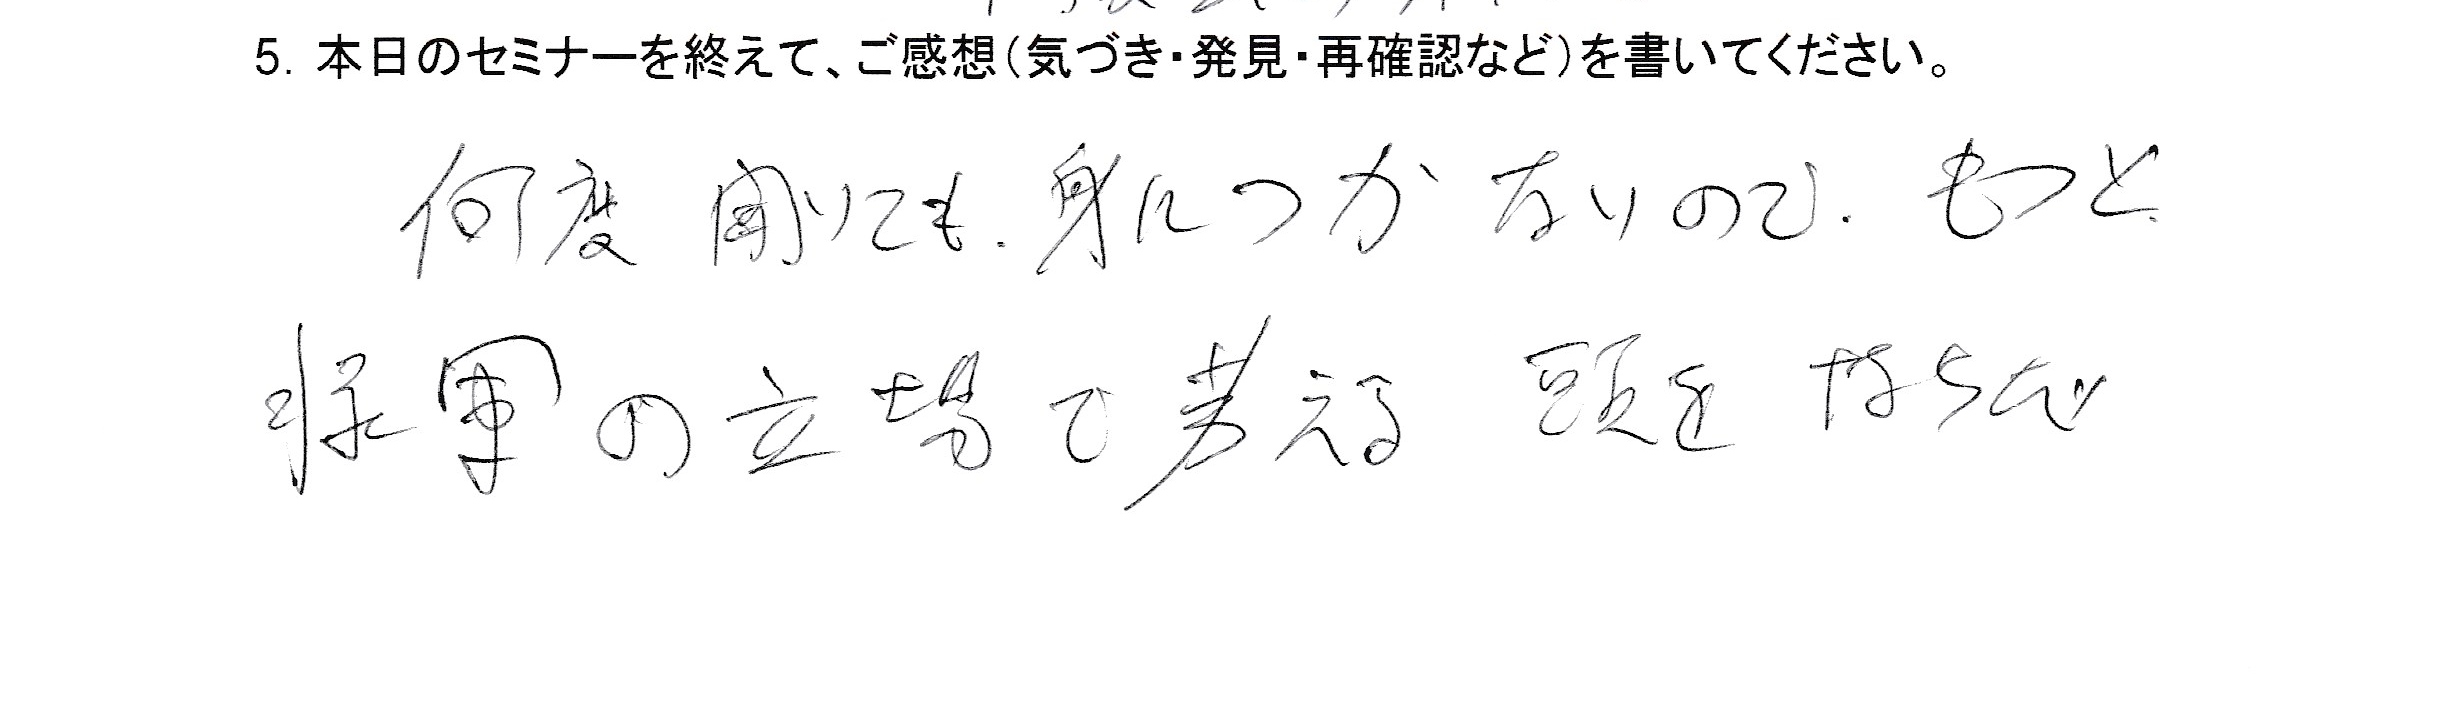 5. 本日のセミナーを終えて、ご感想（気づき・発見・再確認など）を書いてください。
何度聞いても、身につかないので、もっと
将軍の立場で考える頭を